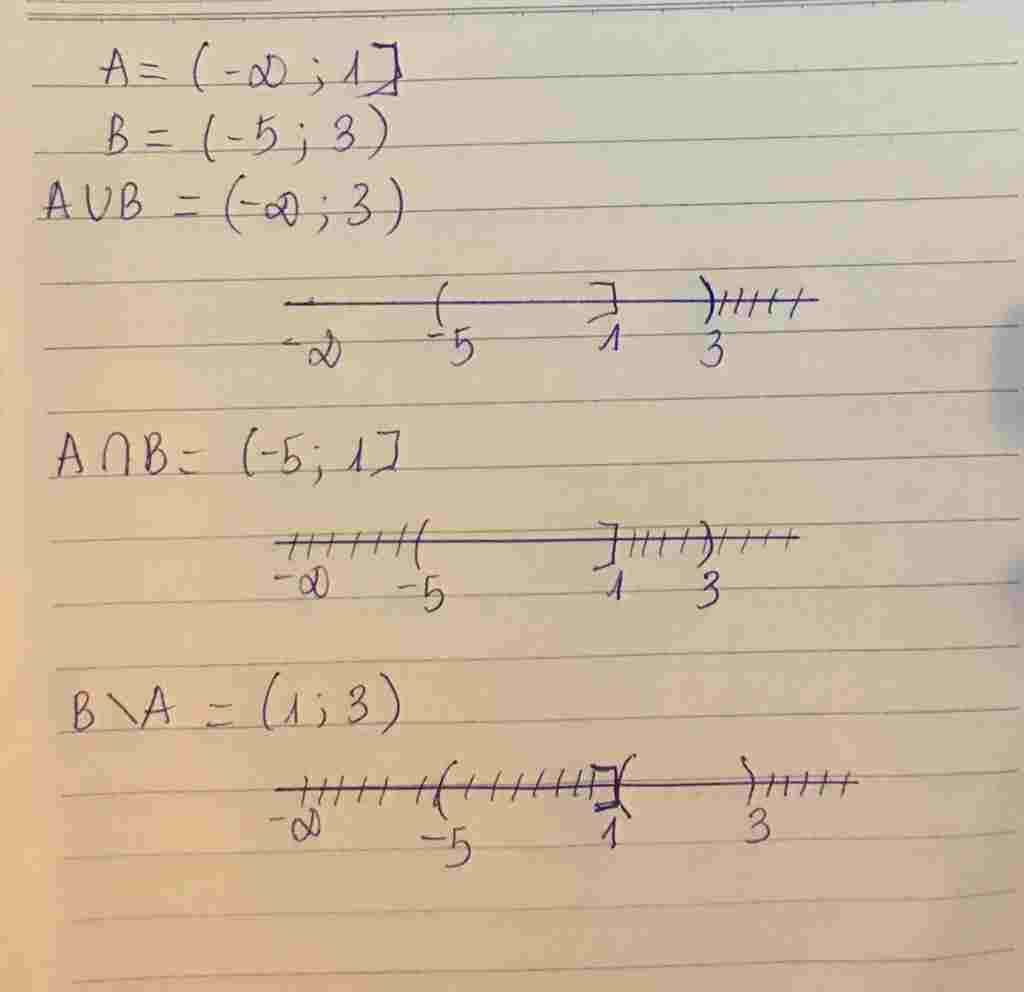 A = (-∞ ; 1]
B = (-5 ; 3)
A∪B = (-∞ ; 3)
-∞ -5 1 3
A∩B = (-5 ; 1]
-∞ -5 1 3
B \ A = (1 ; 3)
-∞ -5 1 3